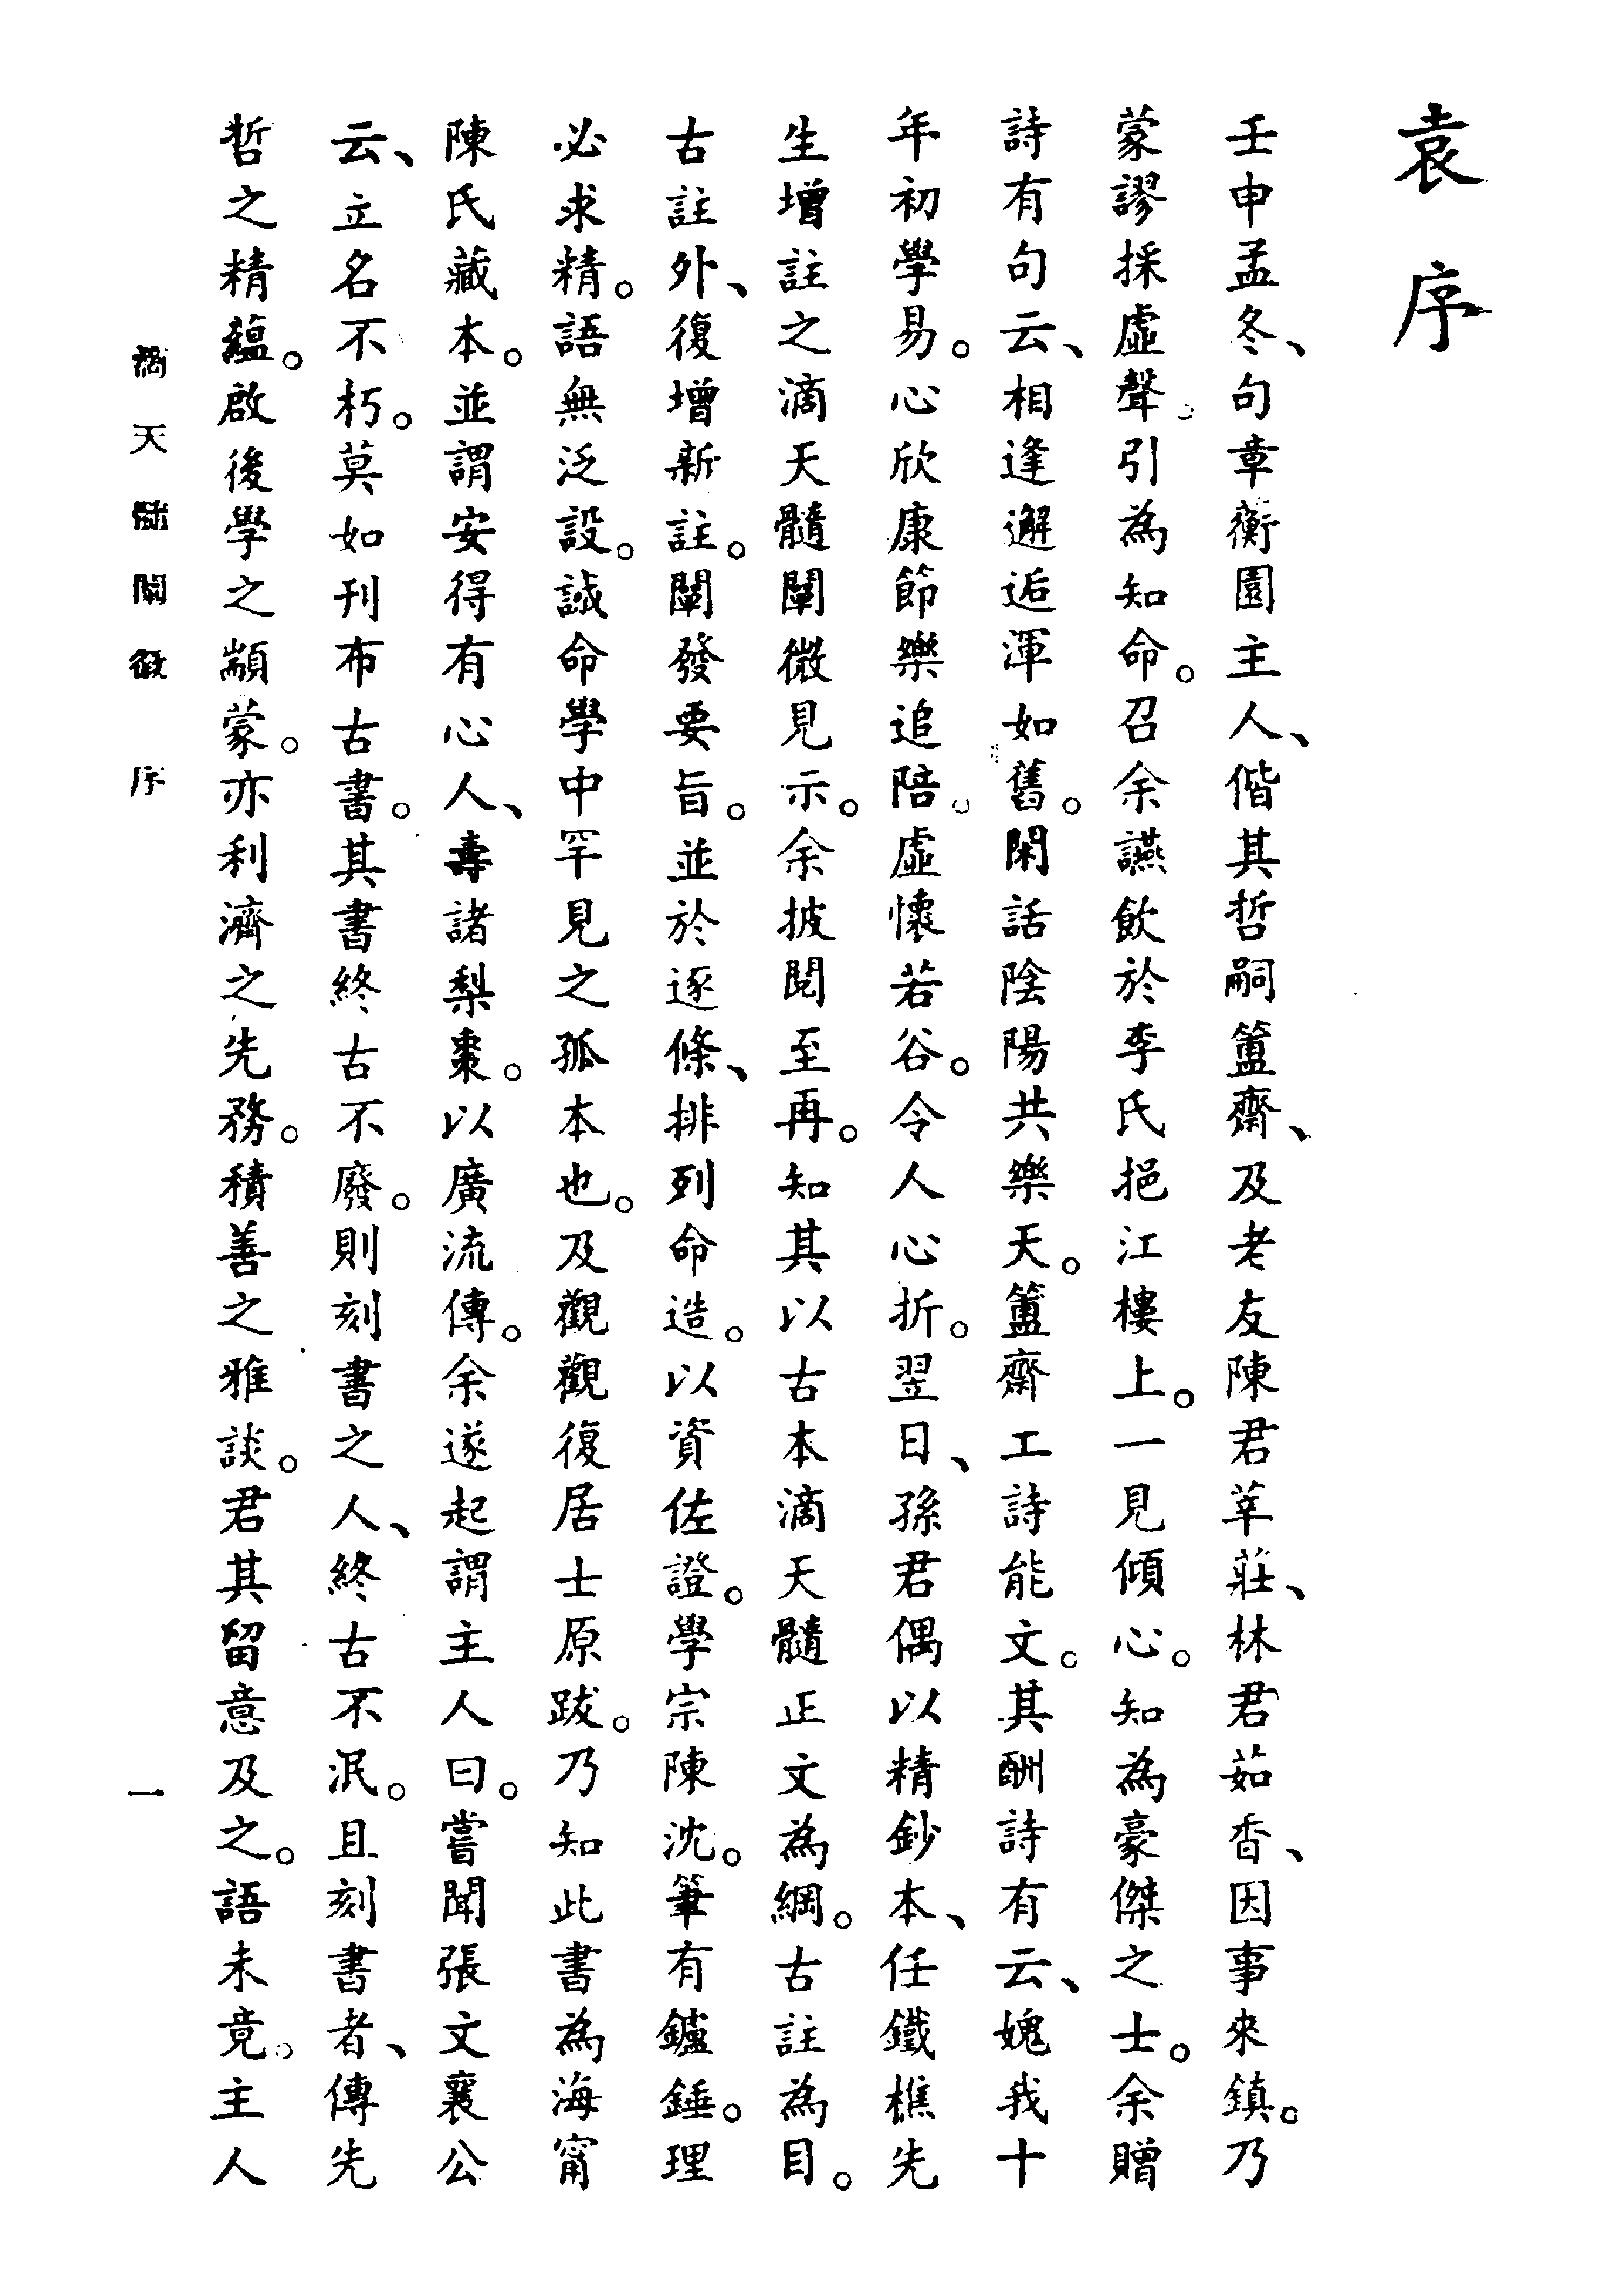 袁序
壬申孟冬、句章蘅園主人、偕其哲嗣簠齋、及老友陳君莘莊、林君茹香、因事來鎮。乃
蒙謬採虛聲。引為知命。召余讌飲於李氏挹江樓上。一見傾心。知為豪傑之士。余贈
詩有句云、相逢邂逅渾如舊。閑話陰陽共樂天。簠齋工詩能文。其酬詩有云、媿我十
年初學易。心欣康節樂追陪。虛懷若谷。令人心折。翌日、孫君偶以精鈔本、任鐵樵先
生增註之滴天髓闡微見示。余披閱至再。知其以古本滴天髓正文為綱。古註為目。
古註外、復增新註。闡發要旨。並於逐條、排列命造。以資佐證。學宗陳沈。筆有鑪錘。理
必求精。語無泛設。誠命學中罕見之孤本也。及觀觀復居士原跋。乃知此書為海甯
陳氏藏本。並謂安得有心人、壽諸梨棗。以廣流傳。余遂起謂主人曰。嘗聞張文襄公
云、立名不朽。莫如刊布古書。其書終古不廢。則刻書之人、終古不泯。且刻書者、傳先
哲之精蘊。啟後學之顓蒙。亦利濟之先務。積善之雅談。君其留意及之。語未竟。主人
滴天髓闡微 序 一